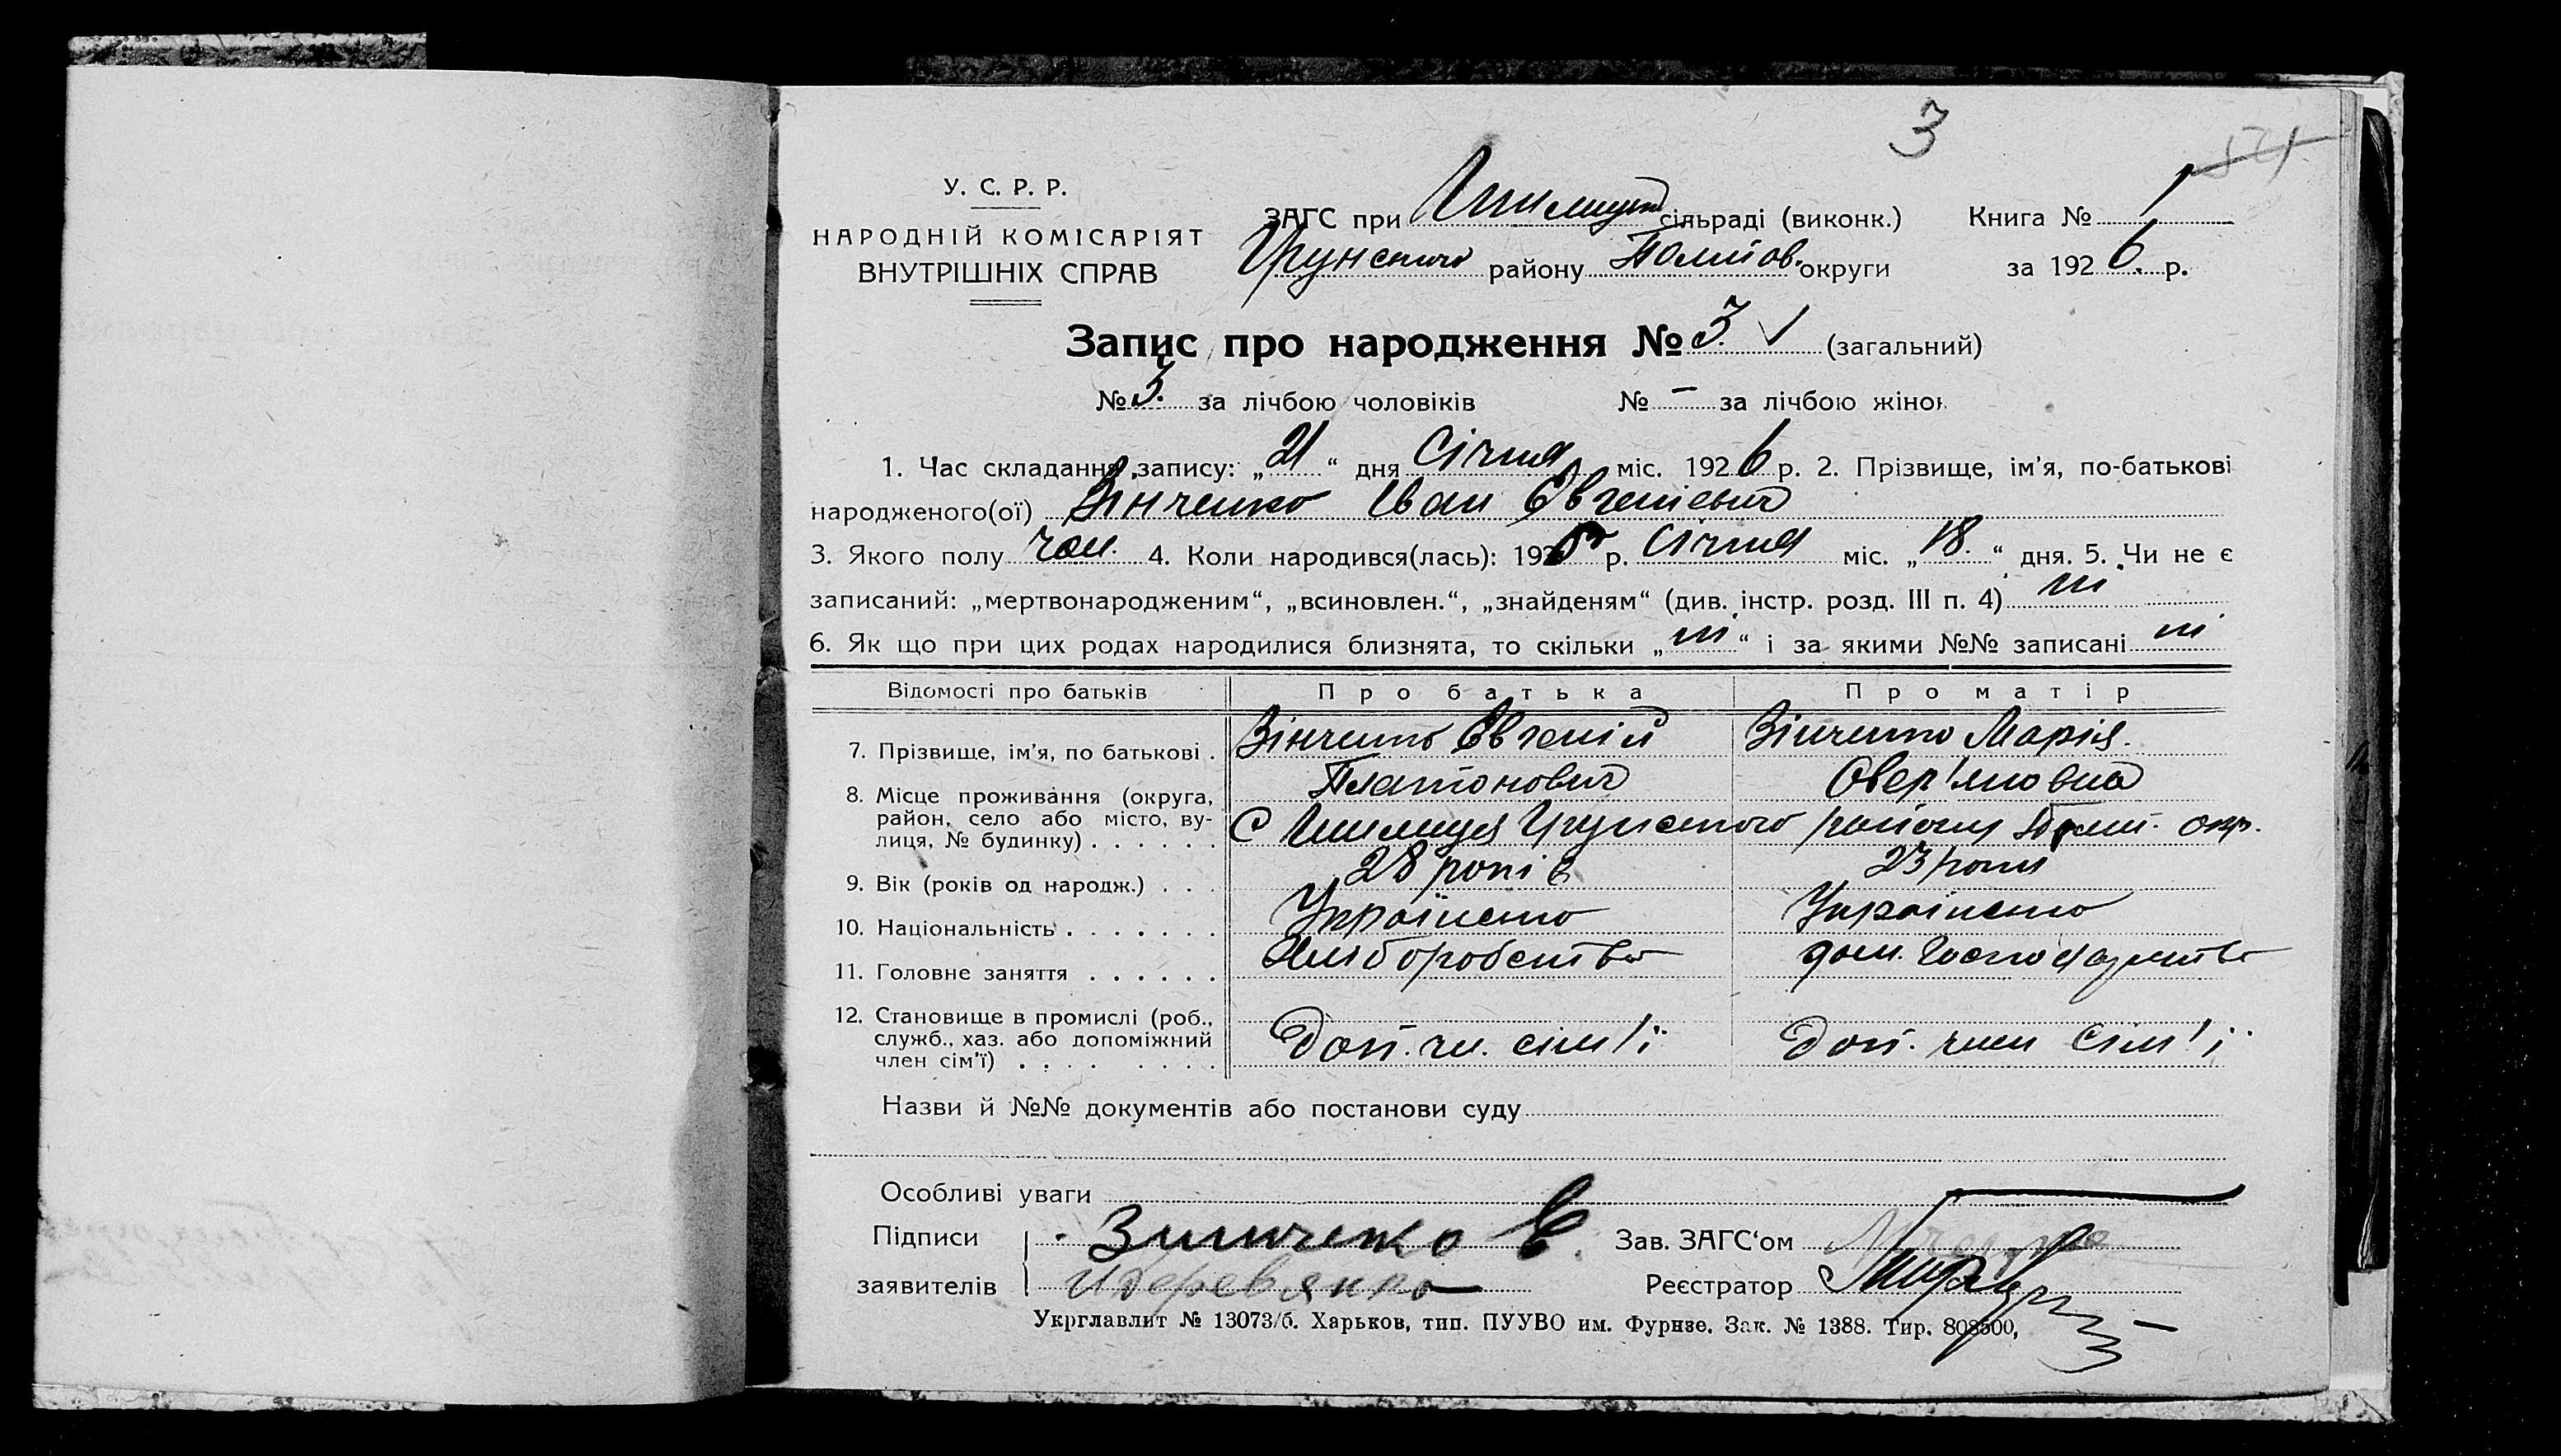 3
54
У. С. Р. Р.
НАРОДНІЙ КОМІСАРІЯТ
ВНУТРІШНІХ СПРАВ
ЗАГС при сільраді (виконк.) Книга № 1
Грунського району Полтов. округи за 1926 р.
Запис про народження № 3 (загальний)
№ 3. за лічбою чоловіків № – за лічбою жінок
1. Час складання запису: „21“ дня Січня міс. 1926 р. 2. Прізвище, ім'я, по-батькові
народженого(ої) Зінченко Іван Євгенієвич
3. Якого полу чол. 4. Коли народився(лась): 192 р. Січня міс. „18.“ дня. 5. Чи не є
записаний: „мертвонародженим“, „всиновлен.“, „знайденям“ (див. інстр. розд. III п. 4) ні
6. Як що при цих родах народилися близнята, то скільки „ні“ і за якими №№ записані ні
Відомості про батьків Про батька Про матір
7. Прізвище, ім'я, по батькові . Зінченко Євгеній Зінченко Марія.
Платонович Овер'яновна
8. Місце проживання (округа, район, село або місто, вулиця, № будинку) . . . . . . С Грунського району Полт. окр.
9. Вік (років од народж.) . . . 28 років 23 роки
10. Національність . . . . . . . Українсько Українсько
11. Головне заняття . . . . . . Хліборобство дом. Господарство
12. Становище в промислі (роб., служб., хаз. або допоміжний член сім'ї) . . . . . . . . Доп. чл. сім'ї Доп. член сім'ї
Назви й №№ документів або постанови суду
Особливі уваги
Підписи Зинченко Е. Зав. ЗАГС'ом
заявителів И Деревянко Реєстратор
Укрглавлит № 13073/б. Харьков, тип. ПУУВО им. Фрунзе. Зак. № 1388. Тир. 808500,